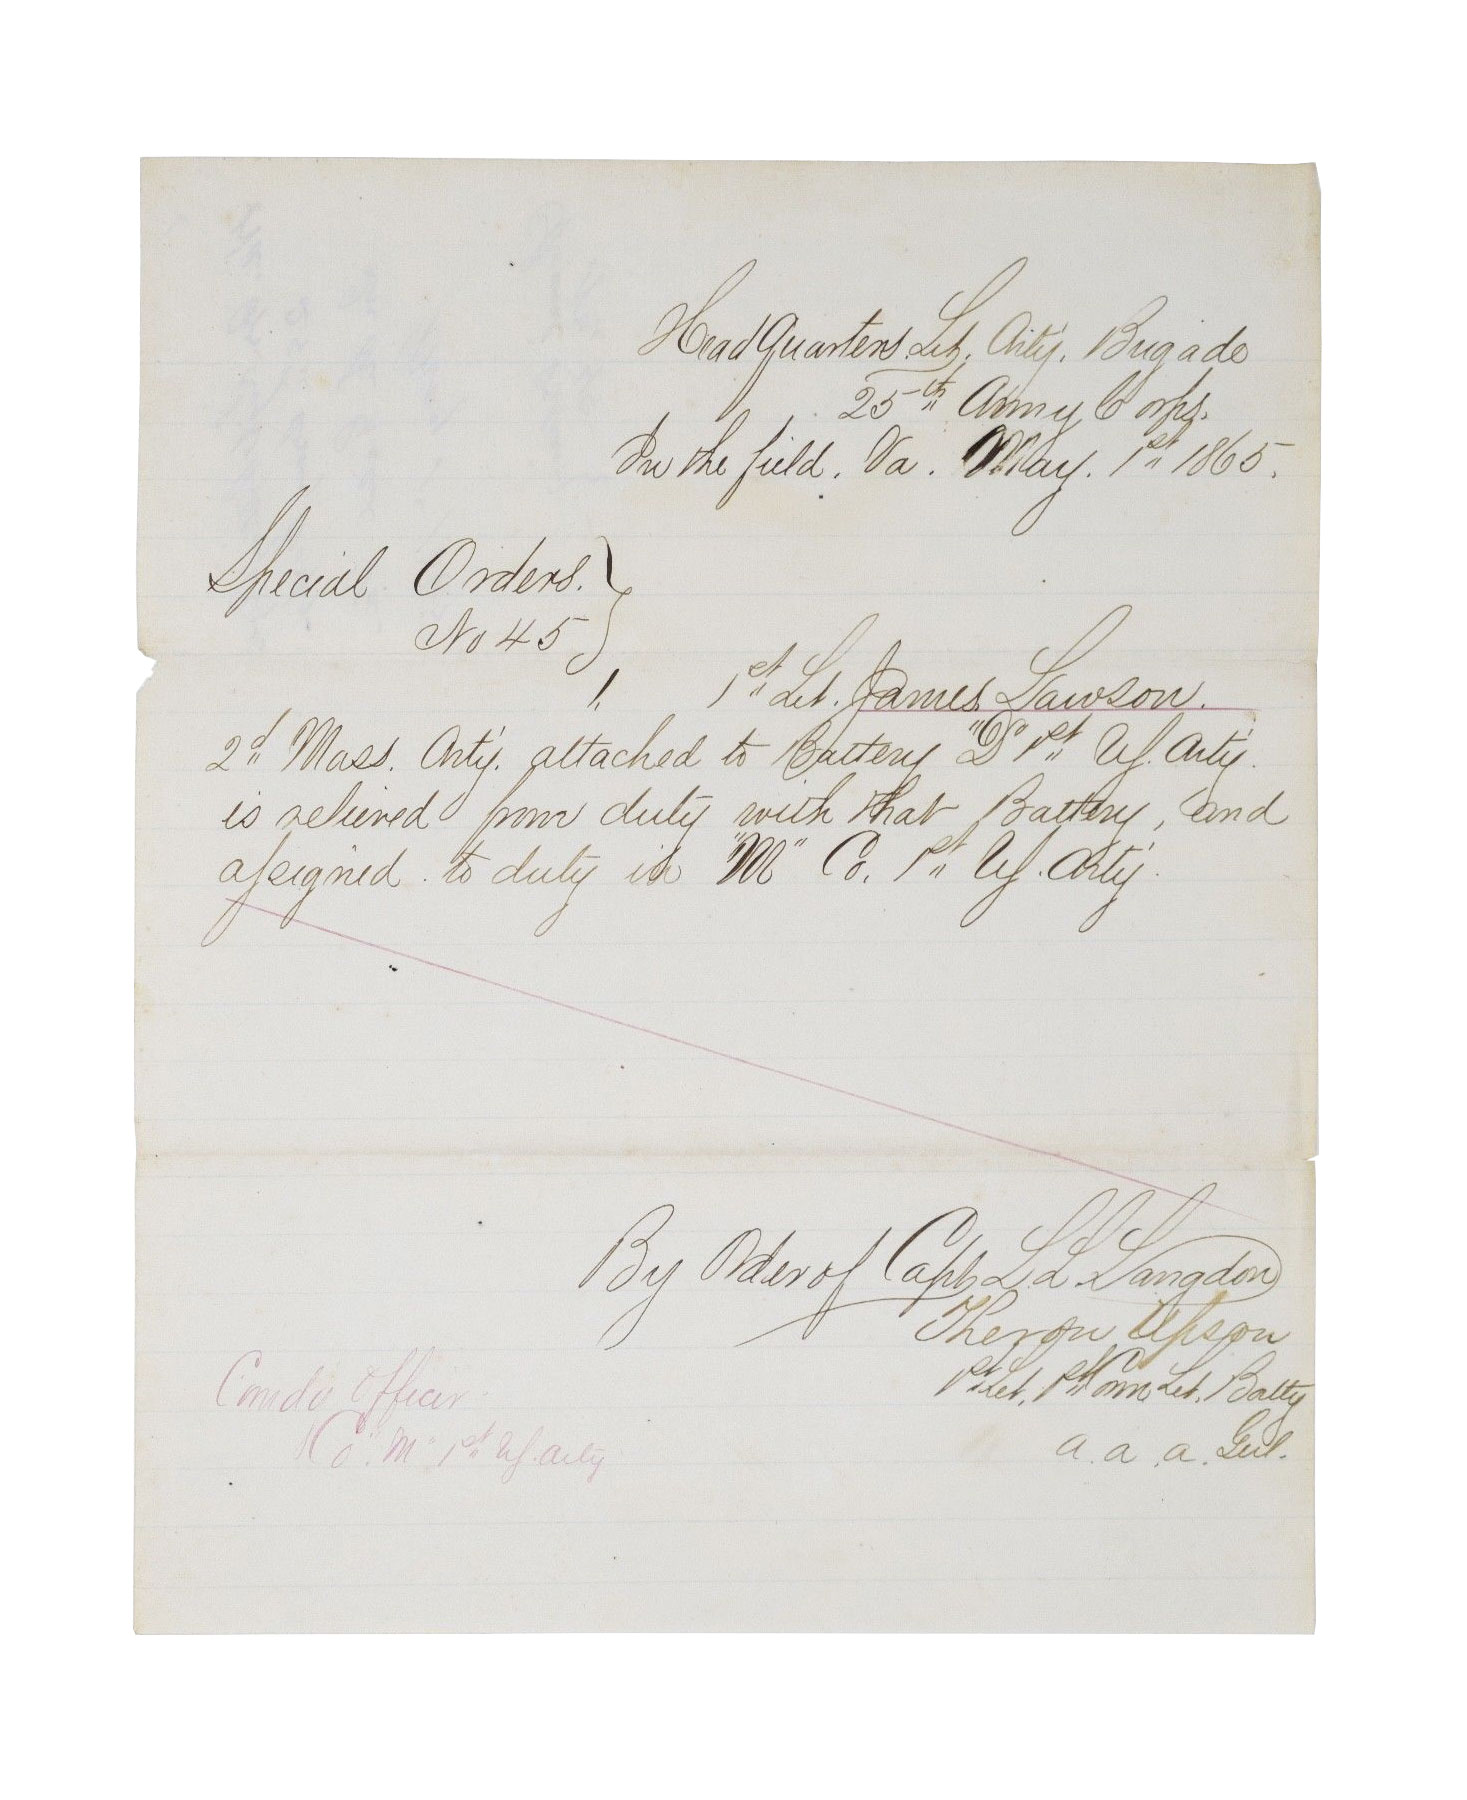 Head Quarters Lt. Arty. Brigade
25th Army Corps.
In the field. Va. May. 1st 1865.
Special Orders. }
No 45 }
1. 1st Lt. James Lawson.
2d Mass. Arty. attached to Battery "D" 1st US. Arty.
is relieved from duty with that Battery, and
assigned to duty in "M" Co. 1st US. Arty.
By Order of Capt. L. L. Langdon
Theron Upson
1st Lt. 1st Conn Lt. Batty
a. a. a. Genl.
Comdg Officer
Co. "M" 1st US. Arty